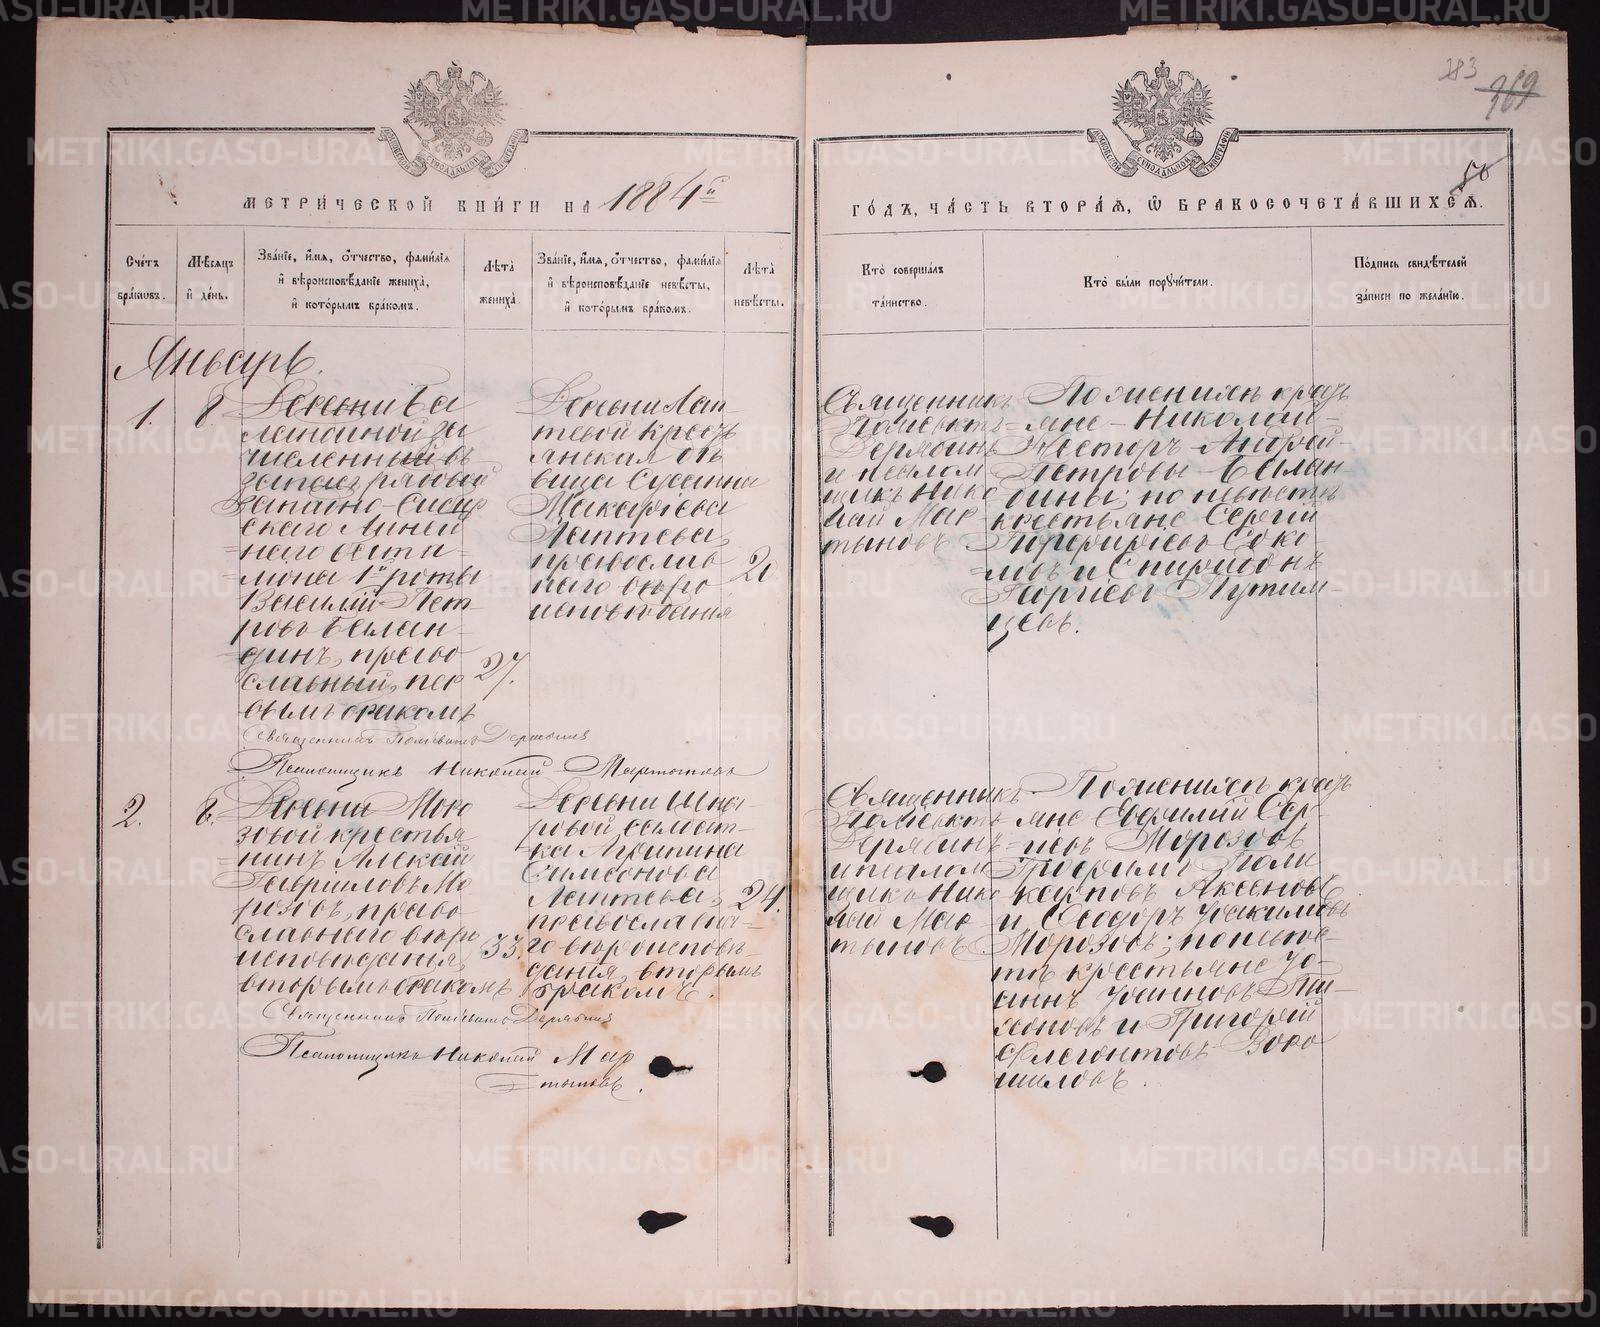 383
369
50
МЕТРИЧЕСКОЙ КНИГИ НА 1884й
ГОДЪ, ЧАСТЬ ВТОРАЯ, Ѡ БРАКОСОЧЕТАВШИХСЯ.
Счетъ браковъ.
Мѣсяцъ и день.
Званіе, имя, отчество, фамилія
и вѣроисповѣданіе жениха,
и которымъ бракомъ.
Лѣта жениха.
Званіе, имя, отчество, фамилія
и вѣроисповѣданіе невѣсты,
и которымъ бракомъ.
Лѣта невѣсты.
Кто совершалъ таинство.
Кто были поручители.
Подпись свидѣтелей
записи по желанію.
Январь.
1.
8.
Деревни Ба
ландиной за
численный въ
запасъ рядовой
Западно-Сибир
скаго Линей
наго батали
она 1й роты
Василій Пет
ровъ Балан
динъ, право
славный, пер
вымъ бракомъ
27.
Деревни Лап
тевой крестъ
янская дѣ
вица Сусанна
Макаріева
Лаптева,
православ
наго вѣро
исповѣданія
21
Священникъ
Поліевктъ
Дерябинъ
и псалом
щикъ Нико
лай Мар
тыновъ
По женихѣ кресть
яне Николай
Несторъ Андрей
Петровы Балан
дины; по невѣстѣ
крестьяне Сергій
Порфиріевъ Соко
ловъ и Спиридонъ
Георгіевъ Путим
цевъ.
Священникъ Поліевктъ Дерябинъ
Псаломщикъ Николай Мартыновъ
2.
8.
Деревни Моро
зовой крестья
нинъ Алексій
Гавріиловъ Мо
розовъ, право
славнаго вѣро
исповѣданія,
вторымъ бракомъ
33.
Деревни Шка
ровой солдат
ка Агрипина
Симеонова
Лаптева,
православна
го вѣроисповѣ
данія, вторымъ
бракомъ.
24.
Священникъ
Поліевктъ
Дерябинъ
и псалом
щикъ Нико
лай Мар
тыновъ
По женихѣ кресть
яне Евфимій Сер
гіевъ Морозовъ
Трофимъ Поли
карповъ Аксеновъ
и Ѳеодоръ Іоакимовъ
Морозовъ; по невѣс
тѣ крестьяне Іо
аннъ Іоанновъ
и Григорій
Флегонтовъ Воро
шиловъ.
Священникъ Поліевктъ Дерябинъ
Псаломщикъ Николай Мар
тыновъ.